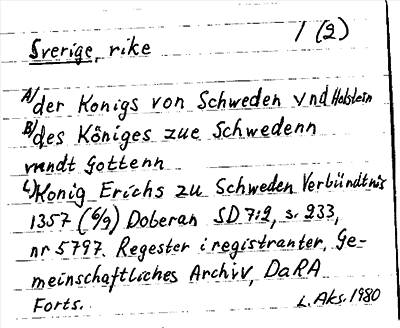 1 (2)
Sverige, rike
A/ der Konigs von Schweden vnd Holstein
B/ des Königes zue Schwedenn
vundt Gottenn
C/ Konig Erichs zu Schweden Verbündtnis
1357 (6/9) Doberan SD 7:2, s. 233,
nr 5797. Regester i registranter, Ge-
meinschaftliches Archiv, DaRA
Forts.
L. Aks. 1980